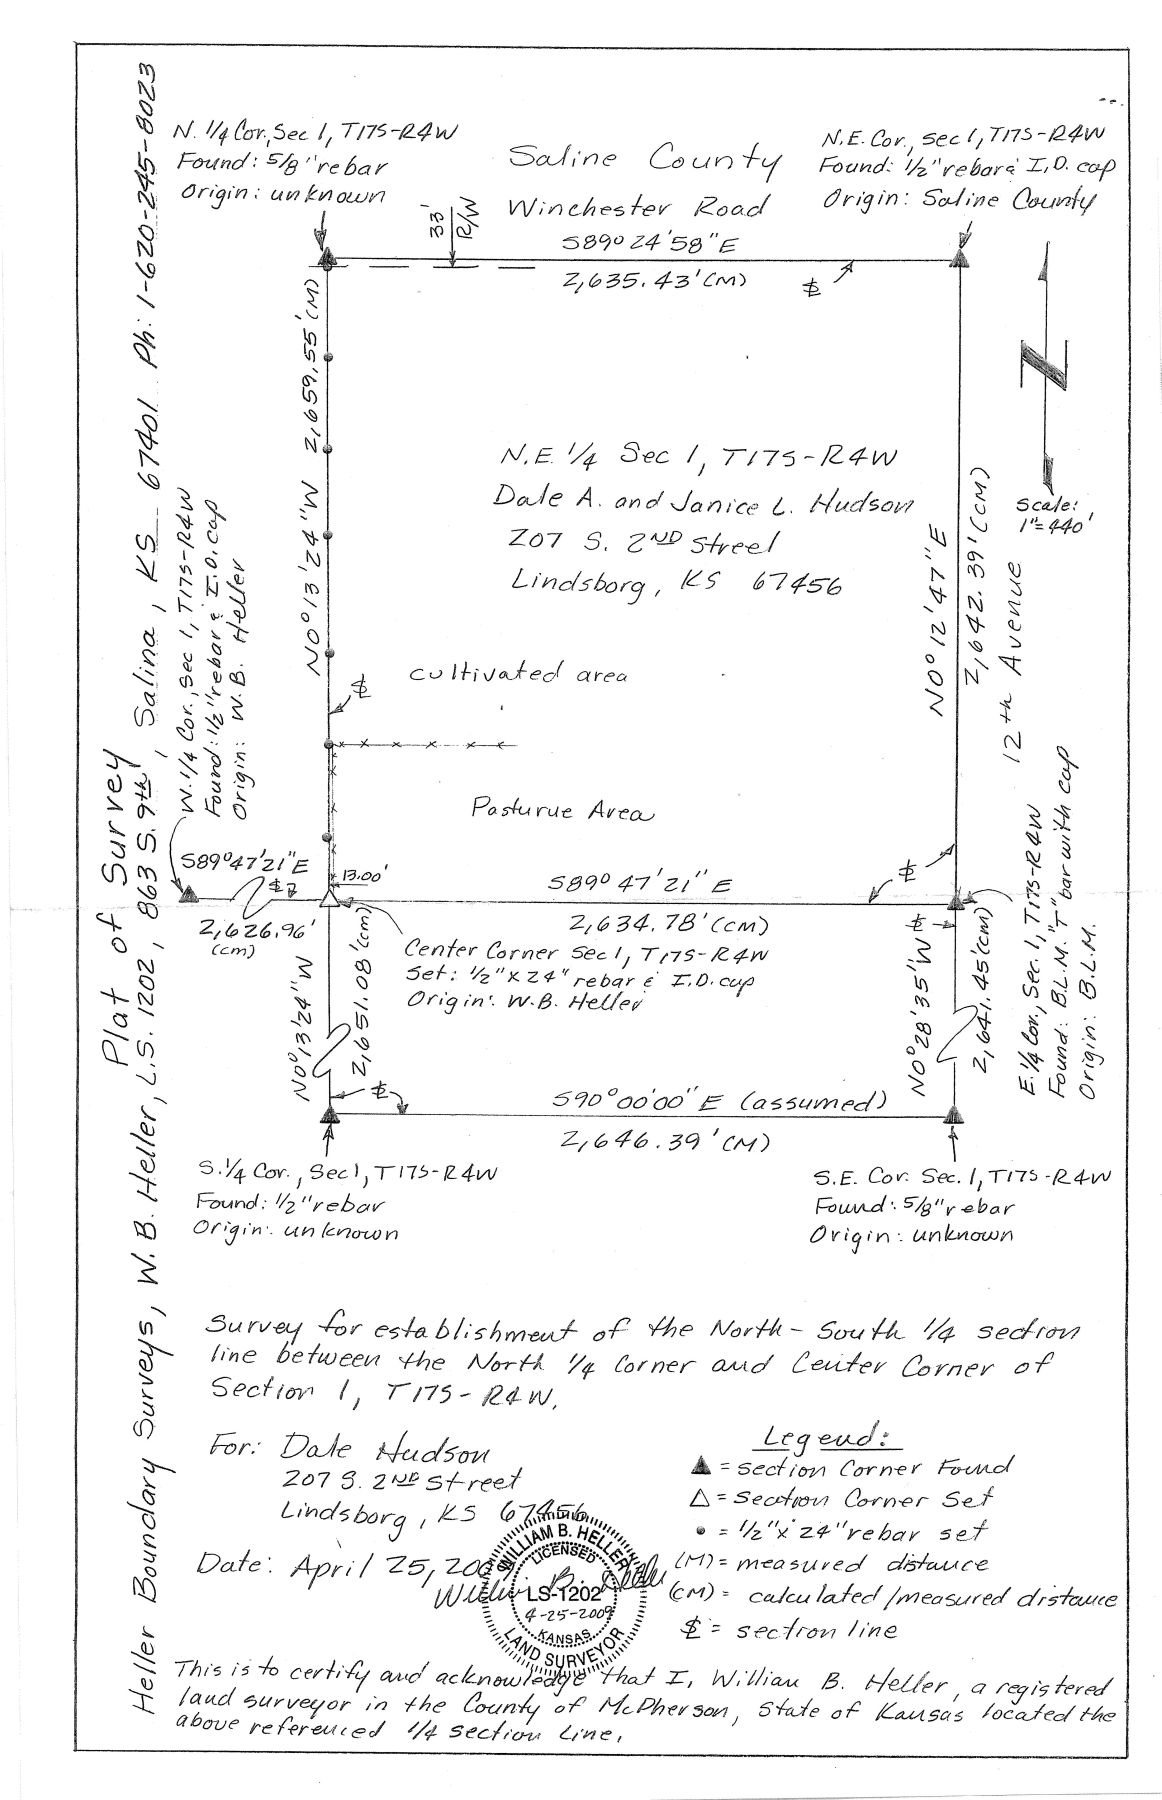 N. 1/4 Cor., Sec 1, T17S-R4W
Found: 5/8" rebar
Origin: unknown
Saline County
Winchester Road
33'
R/W
S89° 24'58" E
2,635.43' (M)
N.E. Cor, sec 1, T17S-R4W
Found: 1/2" rebar & I.D. cap
Origin: Saline County
N
Scale:
1"=440'
N0° 13'24" W 2,659.55' (M)
N.E. 1/4 Sec 1, T17S-R4W
Dale A. and Janice L. Hudson
207 S. 2ND Street
Lindsborg, KS 67456
N0° 12'47" E
2,642.39' (CM)
12th Avenue
cultivated area
Pasturue Area
W. 1/4 Cor., Sec 1, T17S-R4W
Found: 1/2" rebar & I.D. cap
Origin: W.B. Heller
S89°47'21" E
2,626.96'
(cm)
13.00'
S89° 47'21" E
2,634.78' (CM)
Center Corner Sec 1, T17S-R4W
Set: 1/2" X 24" rebar & I.D. cap
Origin: W.B. Heller
N0°13'24" W
2,651.08' (cm)
N0°28'35" W
2,641.45' (cm)
E. 1/4 Cor., Sec. 1, T17S-R4W
Found: B.L.M. "T" bar with cap
Origin: B.L.M.
S90°00'00" E (assumed)
2,646.39' (M)
S. 1/4 Cor., Sec 1, T17S-R4W
Found: 1/2" rebar
Origin: unknown
S.E. Cor. Sec. 1, T17S-R4W
Found: 5/8" rebar
Origin: unknown
Plat of Survey
Heller Boundary Surveys, W.B. Heller, L.S. 1202, 863 S. 9th, Salina, KS 67401 Ph: 1-620-245-8023
Survey for establishment of the North-South 1/4 section
line between the North 1/4 Corner and Center Corner of
Section 1, T17S-R4W.
For: Dale Hudson
207 S. 2ND Street
Lindsborg, KS 67456
Date: April 25, 2009
WILLIAM B. HELLER
LICENSED
LS-1202
4-25-2009
KANSAS
LAND SURVEYOR
Legend:
▲ = section Corner Found
△ = Section Corner Set
• = 1/2" x 24" rebar set
(M) = measured distance
(CM) = calculated/measured distance
= section line
This is to certify and acknowledge that I, Willian B. Heller, a registered
land surveyor in the County of McPherson, State of Kansas located the
above referenced 1/4 section line.